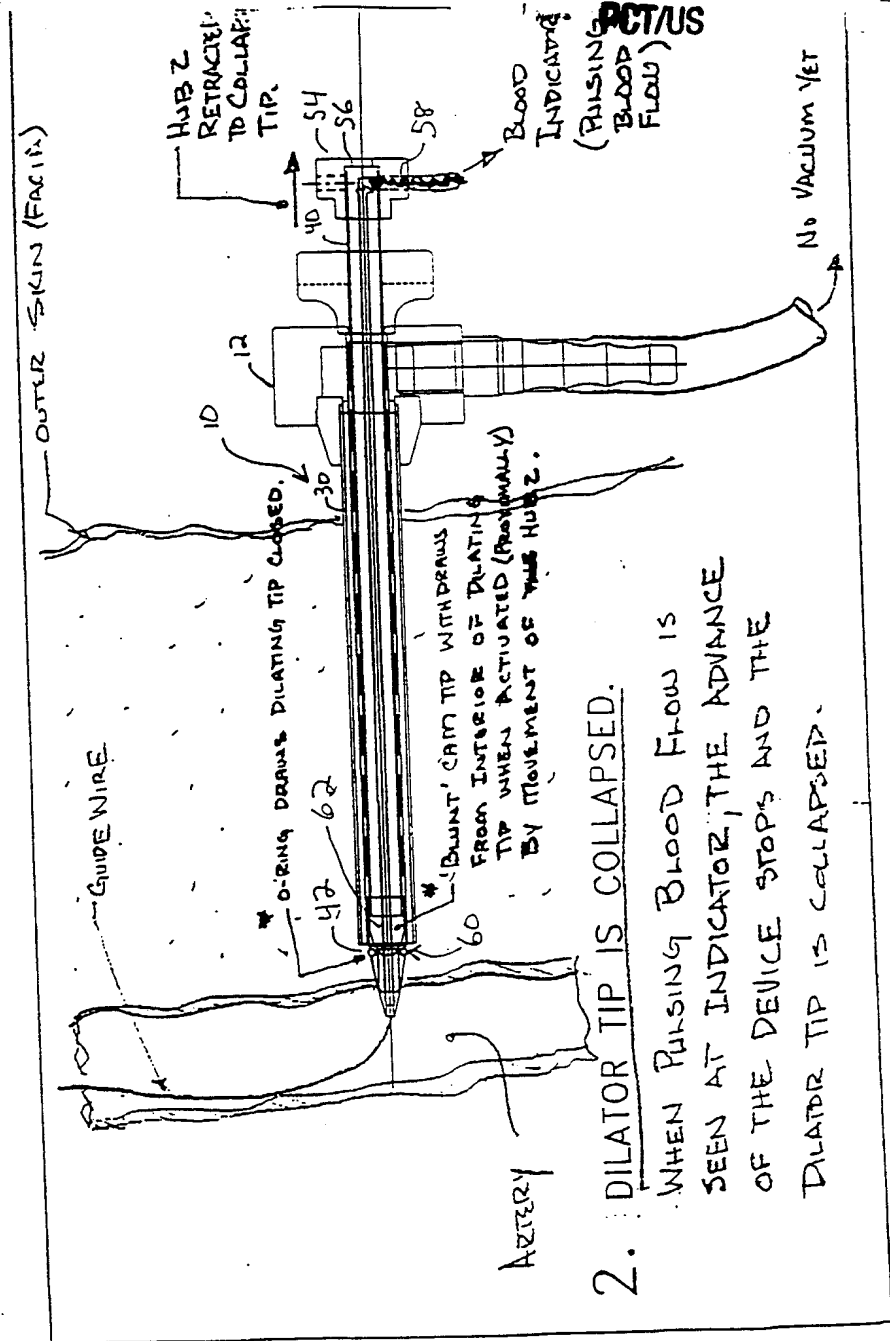 PCT/US
OUTER SKIN (FACIA)
HUB 2
RETRACTED
TO COLLAPSE
TIP.
54
56
58
40
BLOOD
INDICATOR
(PULSING
BLOOD
FLOW)
12
10
30
NO VACUUM YET
GUIDE WIRE
* O-RING DRAWS DILATING TIP CLOSED.
62
42
60
* 'BLUNT' CAM TIP WITHDRAWS
FROM INTERIOR OF DILATING
TIP WHEN ACTIVATED (PROXIMALLY)
BY MOVEMENT OF HUB 2.
ARTERY
2. DILATOR TIP IS COLLAPSED.
WHEN PULSING BLOOD FLOW IS
SEEN AT INDICATOR, THE ADVANCE
OF THE DEVICE STOPS AND THE
DILATOR TIP IS COLLAPSED.